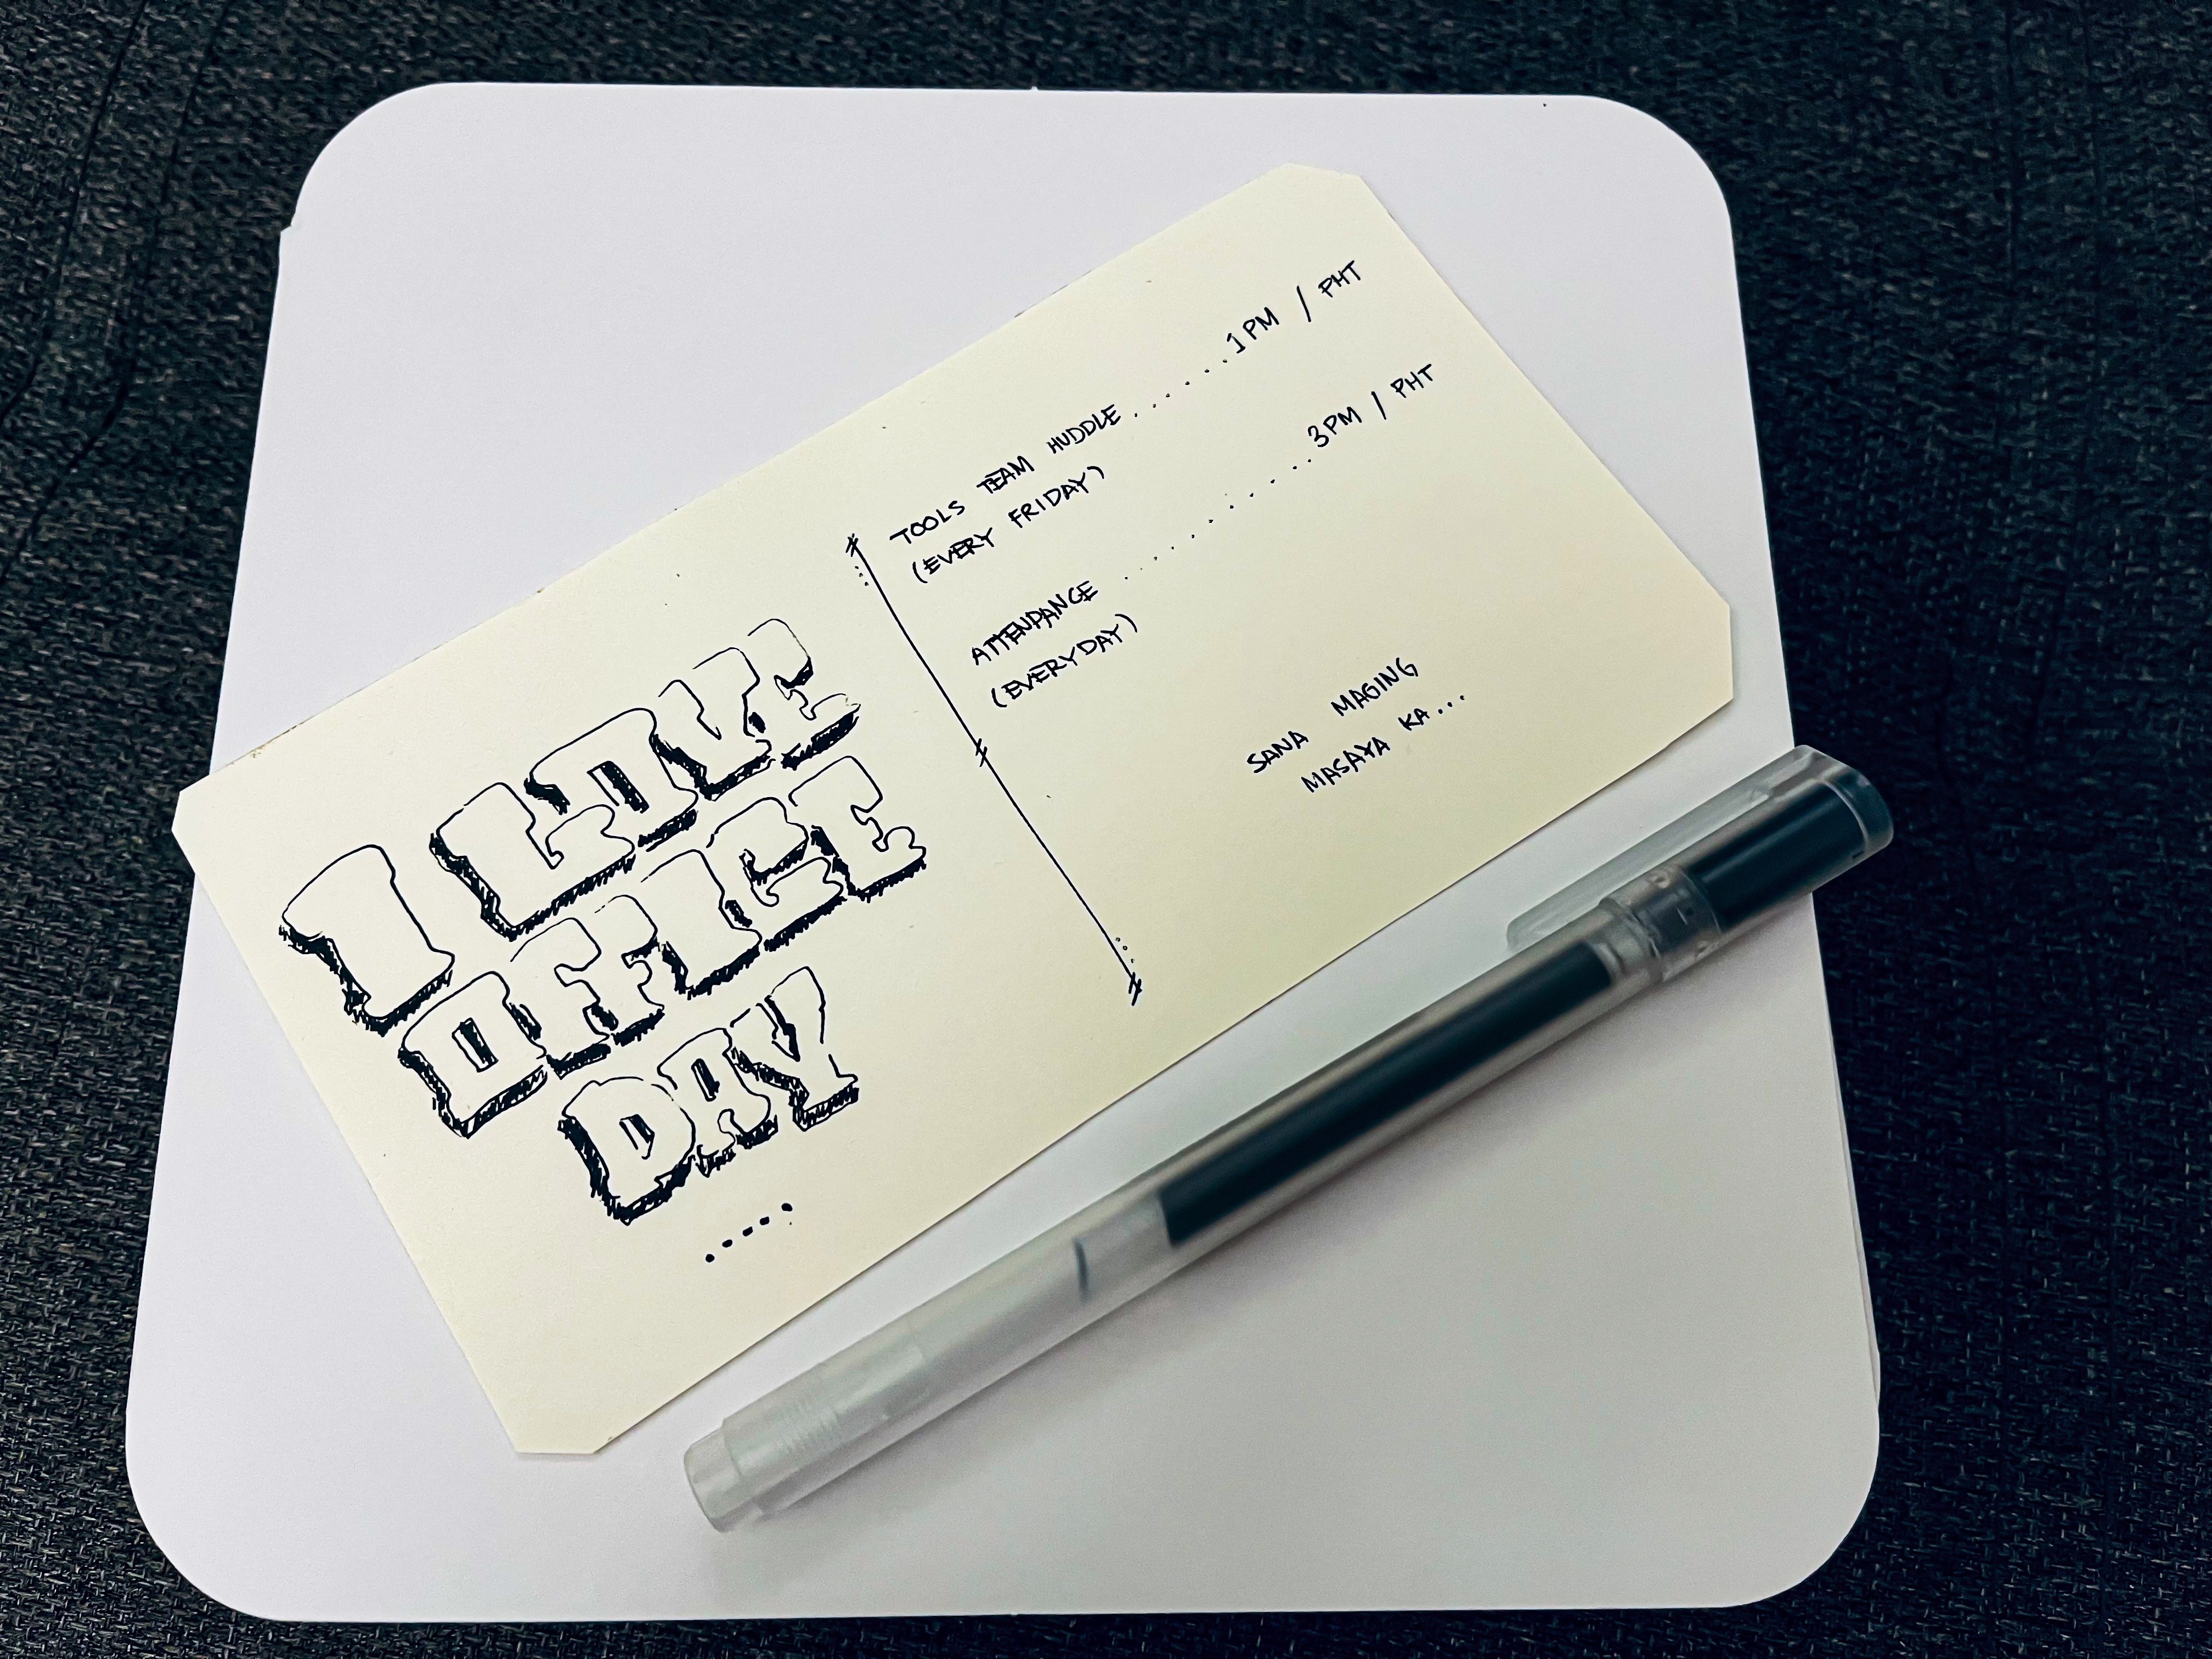 I LOVE
OFFICE
DAY
.....
TOOLS TEAM HUDDLE ......... 1PM / PHT
(EVERY FRIDAY)
ATTENDANCE ........... 3PM / PHT
(EVERYDAY)
SANA MAGING
MASAYA KA...